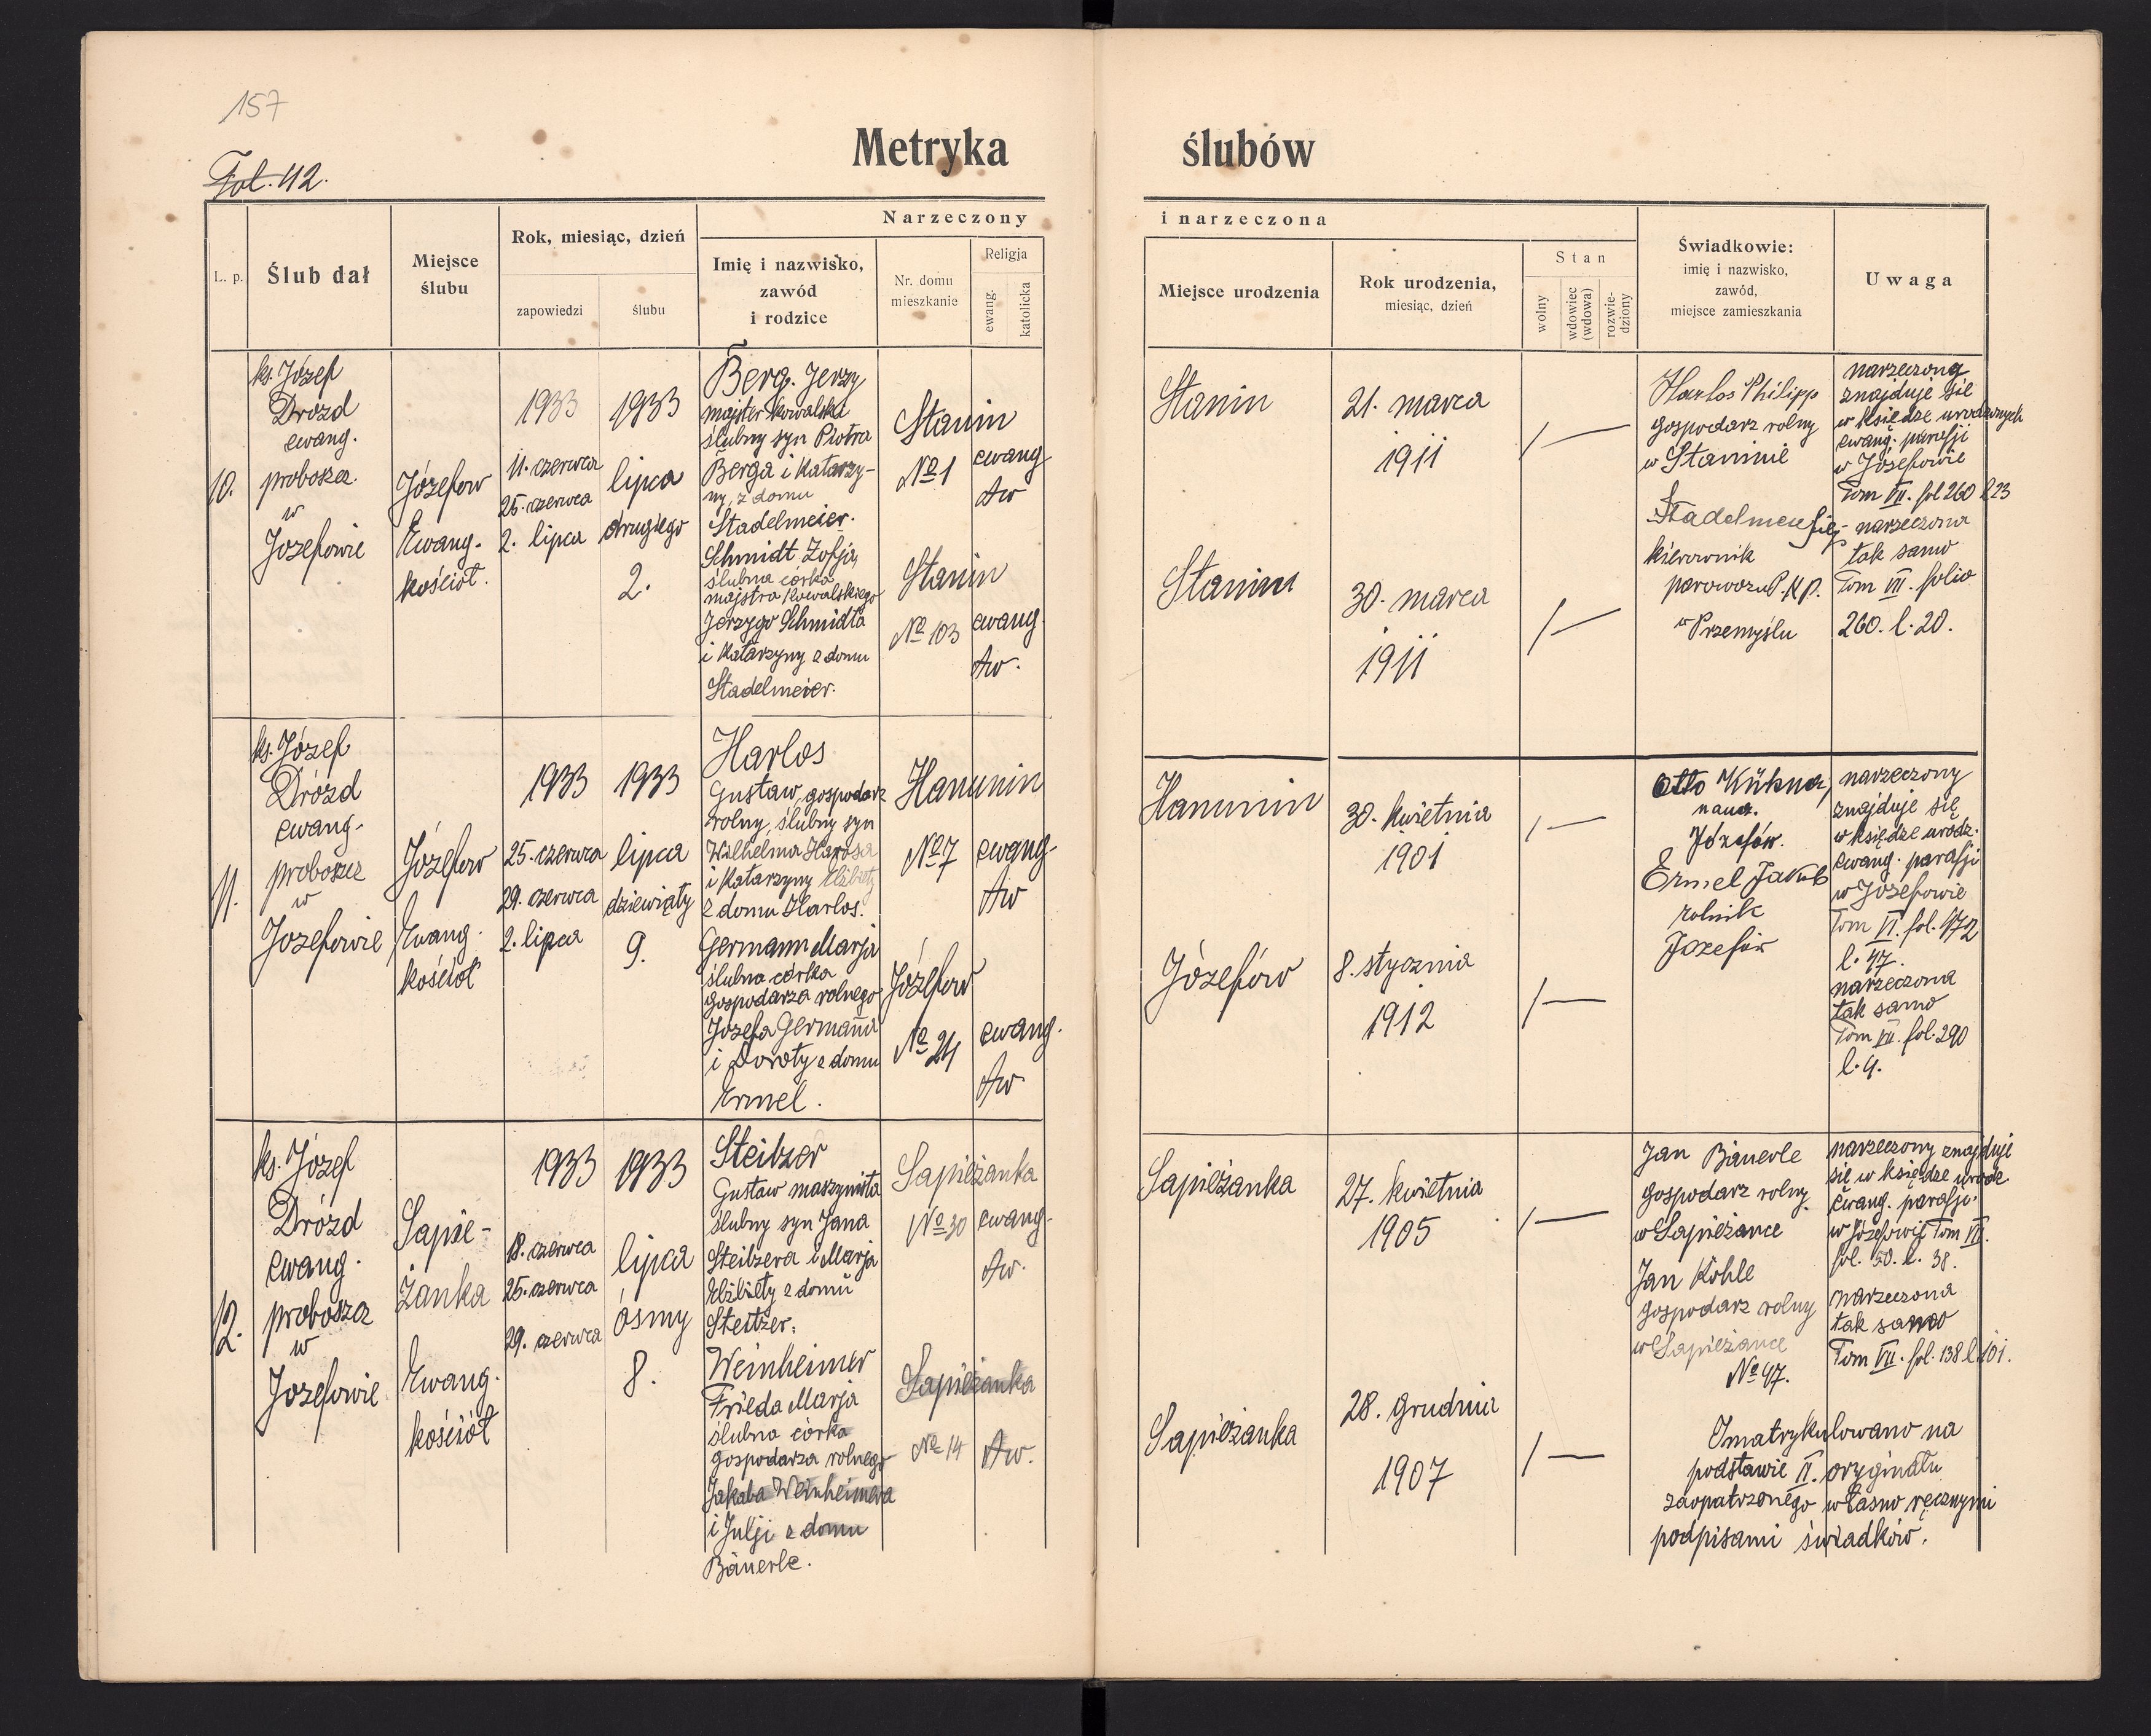 157
Fol. 42.
Metryka ślubów
L. p.
Ślub dał
Miejsce
ślubu
Rok, miesiąc, dzień
zapowiedzi
ślubu
Narzeczony
Imię i nazwisko,
zawód
i rodzice
Nr. domu
mieszkanie
Religja
ewang.
katolicka
i narzeczona
Miejsce urodzenia
Rok urodzenia,
miesiąc, dzień
Stan
wolny
wdowiec
(wdowa)
rozwie-
dziony
Świadkowie:
imię i nazwisko,
zawód,
miejsce zamieszkania
Uwaga
10.
ks. Józef
Drozd
ewang.
proboszcz
w
Józefowie
Józefow
Ewang.
kościół.
1933
11. czerwca
25. czerwca
2. lipca
1933
lipca
drugiego
2.
Berg. Jerzy
majster kowalski
ślubny syn Piotra
Berga i Katarzy-
ny, z domu
Stadelmeier.
Schmidt Zofja,
ślubna córka
majstra kowalskiego
Jerzygo Schmidta
i Katarzyny z domu
Stadelmeier.
Stanin
No 1
Stanin
No 103
ewang
Aw
ewang.
Aw.
Stanin
Stanin
21. marca
1911
30. marca
1911
/ —
/ —
Harlos Philipp
gospodarz rolny
w Staninie
Stadelmeier
kierownik
parowozu P.K.P.
w Przemyślu
narzeczony
znajduje się
w księdze urodzonych
ewang. parafji
w Józefowie
Tom VII. fol 260 l 23
narzeczona
tak samo
Tom VII. folio
260. l. 20.
11.
ks. Józef
Drozd
ewang.
proboszcz
w
Jozefowie
Józefow
Ewang.
kościół
1933
25. czerwca
29. czerwca
2. lipca
1933
lipca
dziewiąty
9.
Harlos
Gustaw, gospodarz
rolny, ślubny syn
Wilhelma Harlosa
i Katarzyny Elżbiety
z domu Harlos.
Germann Marja
ślubna córka
gospodarza rolnego
Józefa Germanna
i Doroty z domu
Ermel.
Hanunin
No 7
Józefow
No 24
ewang.
Aw
ewang.
Aw
Hanunin
Józefów
30. kwietnia
1901
8. stycznia
1912
/ —
/ —
Otto Kühner,
naucz.
Józefów.
Ermel Jakób
rolnik
Józefów
narzeczony
znajduje się
w księdze urodz.
ewang. parafji
w Józefowie
Tom VI. fol. 172
l. 47.
narzeczona
tak samo
Tom VII. fol. 290
l. 4.
12.
ks. Józef
Drózd
ewang.
proboszcz
w
Jozefowie
Sapie-
żanka
Ewang.
kościół
1933
18. czerwca
25. czerwca
29. czerwca
1933
lipca
ósmy
8.
Steitzer
Gustaw maszynista
ślubny syn Jana
Steitzera i Marja
Elżbiety z domu
Steitzer.
Weinheimer
Frieda Marja
ślubna córka
gospodarza rolnego
Jakuba Weinheimera
i Julji z domu
Bäuerle.
Sapieżanka
No 30
Sapieżanka
No 14
ewang.
Aw.
Aw.
Sapieżanka
Sapieżanka
27. kwietnia
1905
28. grudnia
1907
/ —
/ —
Jan Bäuerle
gospodarz rolny
w Sapieżance
Jan Köhle
gospodarz rolny
w Sapieżance
No 47.
narzeczony znajduje
się w księdze urodz.
ewang. parafji
w Józefowie Tom VII.
fol. 50. l. 38.
narzeczona
tak samo
Tom VII. fol. 138 l. 101.
Imatrykulowano na
podstawie II. oryginału
zaopatrzonego własno ręcznymi
podpisami świadków.